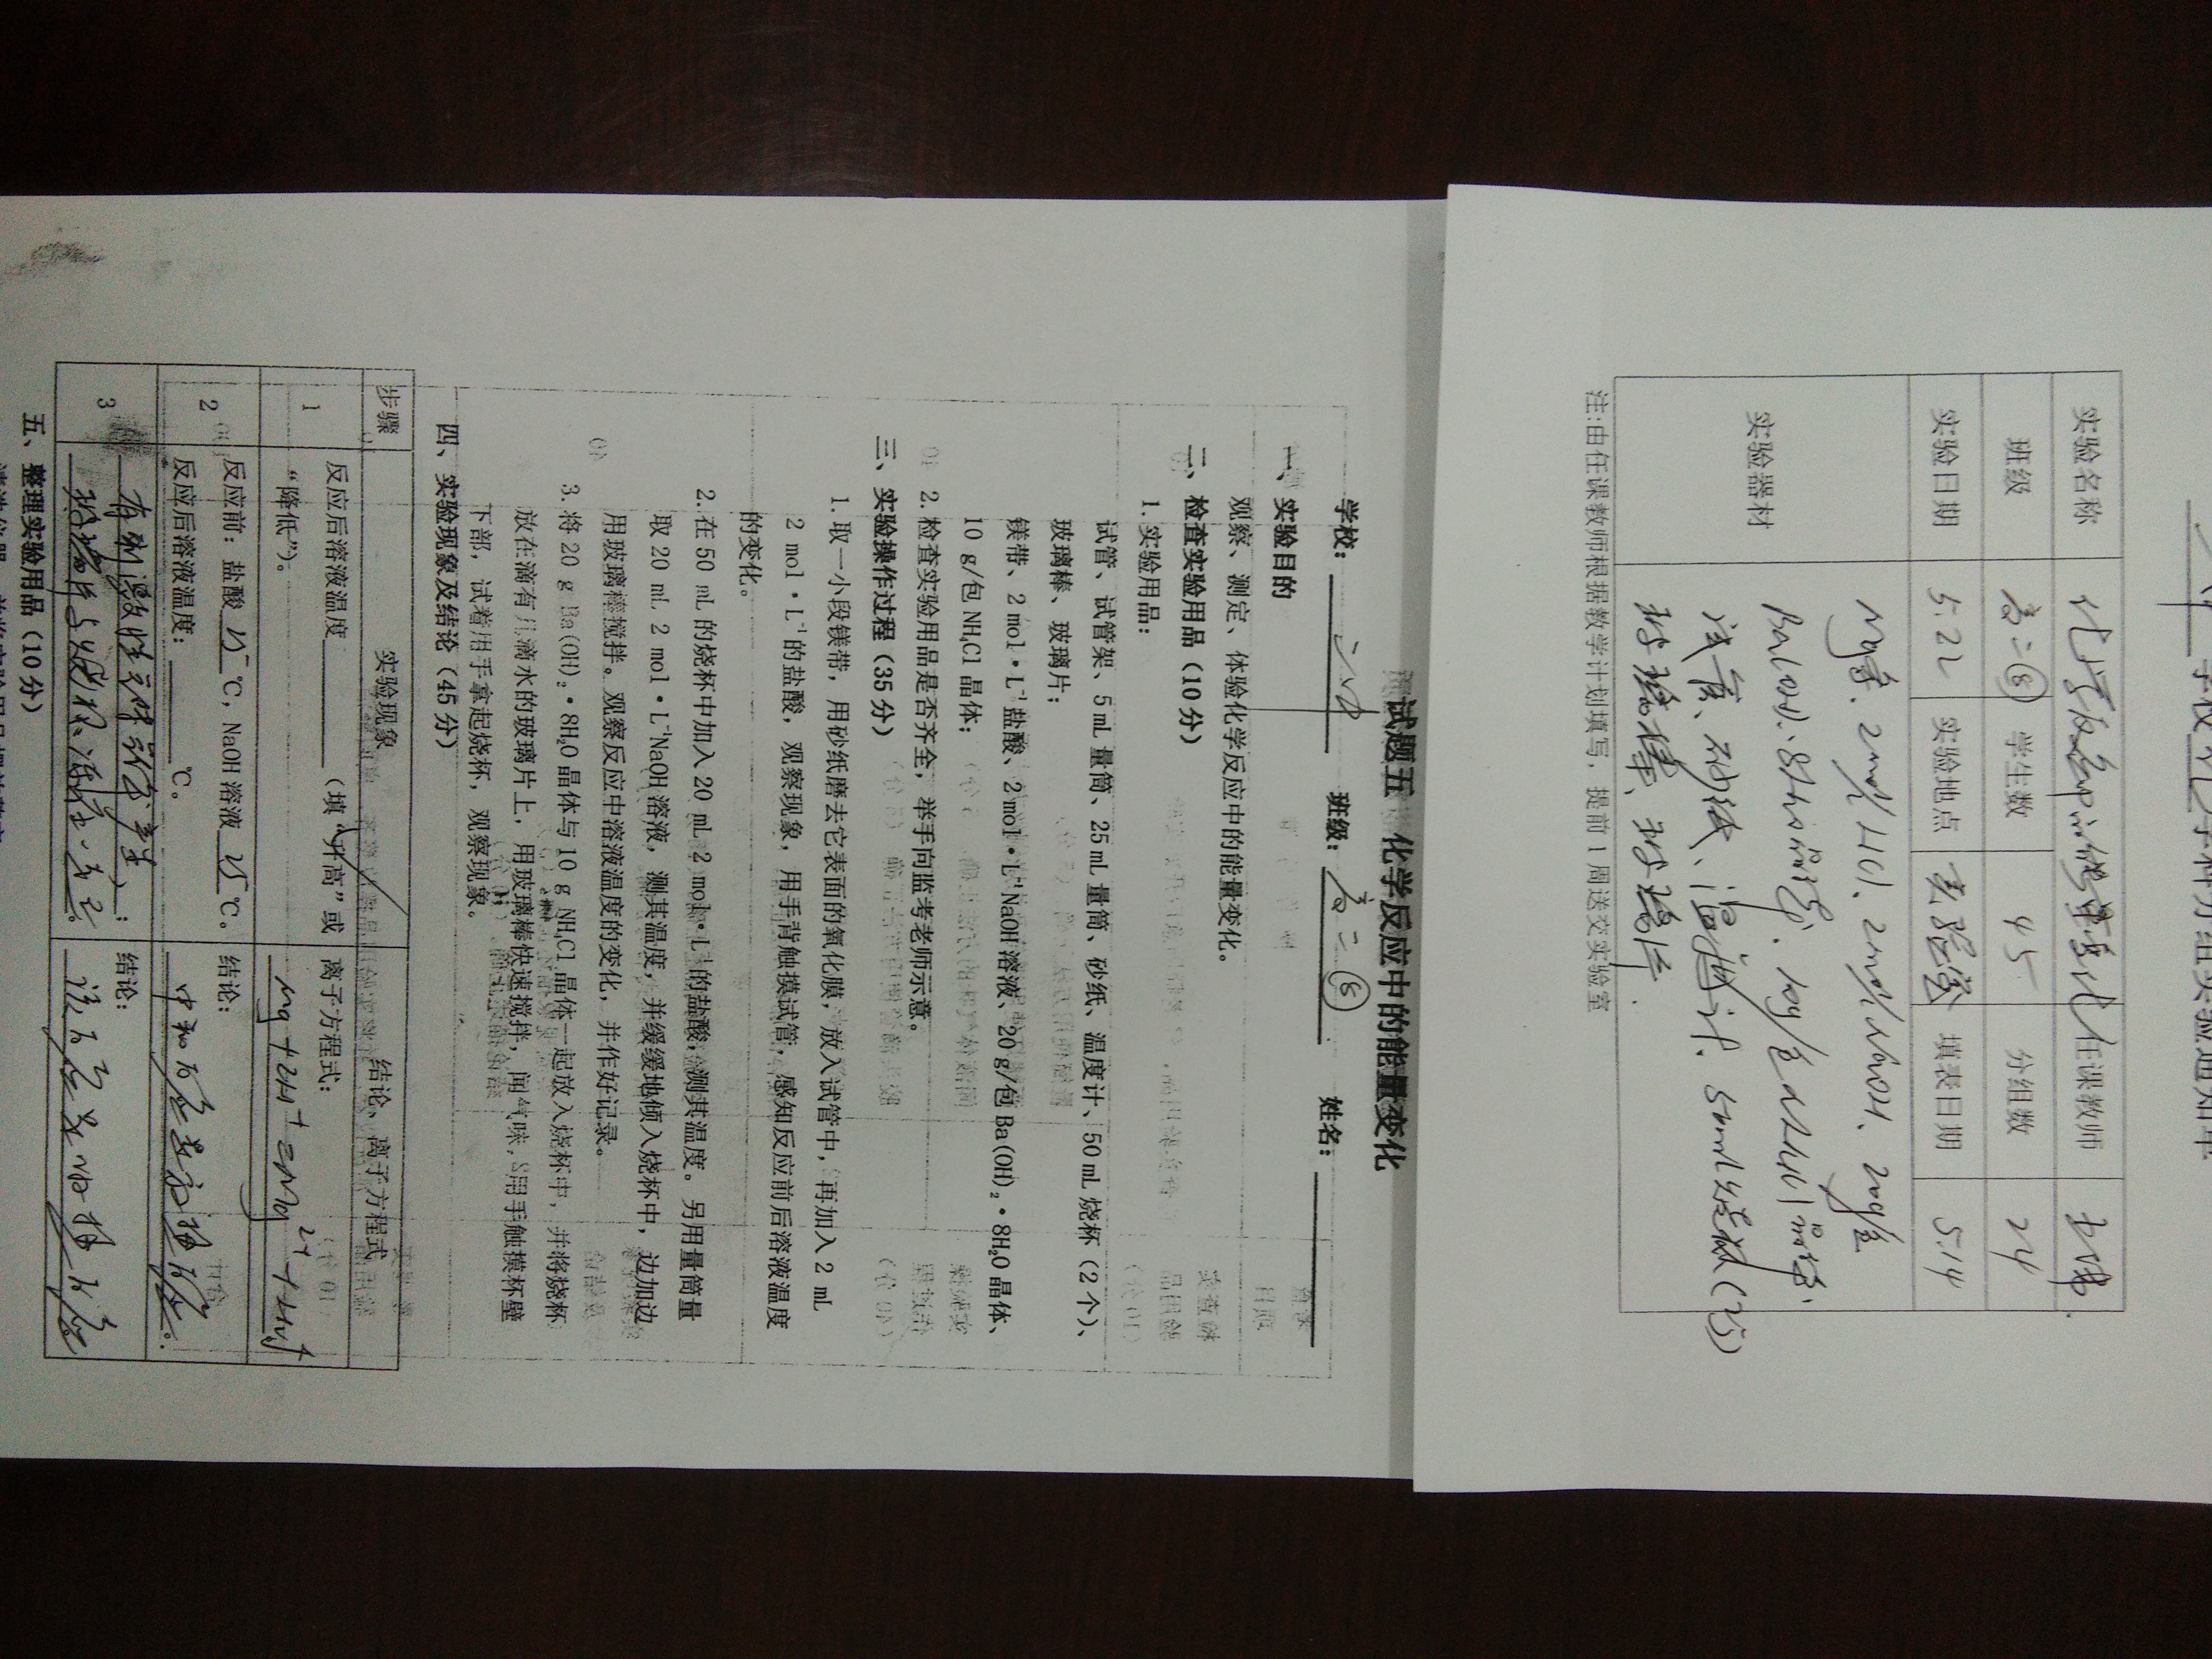 学校化学学科分组实验通知单
实验名称 化学反应中的能量变化 任课教师
班级 高二(8) 学生数 45 分组数 24
实验日期 5.22 实验地点 填表日期 5.14
实验器材
Mg条、2mol/LHCl、2mol/LNaOH、20g/包
Ba(OH)₂·8H₂O晶体、10g/包NH₄Cl晶体
试管、砂纸、温度计、50ml烧杯(2个)
玻璃棒、玻璃片.
注:由任课教师根据教学计划填写，提前 1 周送交实验室
试题五 化学反应中的能量变化
学校： 班级：高二(8) 姓名：
一、实验目的
观察、测定、体验化学反应中的能量变化。
二、检查实验用品（10 分）
1. 实验用品：
试管、试管架、5 mL 量筒、25 mL 量筒、砂纸、温度计、50 mL 烧杯（2 个）、
玻璃棒、玻璃片；
镁带、2 mol·L⁻¹盐酸、2 mol·L⁻¹NaOH 溶液、20 g/包 Ba(OH)₂·8H₂O 晶体、
10 g/包 NH₄Cl 晶体；
2. 检查实验用品是否齐全，举手向监考老师示意。
三、实验操作过程（35 分）
1. 取一小段镁带，用砂纸磨去它表面的氧化膜，放入试管中，再加入 2 mL
2 mol·L⁻¹的盐酸，观察现象，用手背触摸试管，感知反应前后溶液温度
的变化。
2. 在 50 mL 的烧杯中加入 20 mL 2 mol·L⁻¹的盐酸，测其温度。另用量筒量
取 20 mL 2 mol·L⁻¹NaOH 溶液，测其温度，并缓缓地倾入烧杯中，边加边
用玻璃棒搅拌。观察反应中溶液温度的变化，并作好记录。
3. 将 20 g Ba(OH)₂·8H₂O 晶体与 10 g NH₄Cl 晶体一起放入烧杯中，并将烧杯
放在滴有几滴水的玻璃片上，用玻璃棒快速搅拌，闻气味，用手触摸杯壁
下部，试着用手拿起烧杯，观察现象。
四、实验现象及结论（45 分）
步骤 实验现象 结论、离子方程式
1 反应后溶液温度（填“升高”或 离子方程式：
“降低”）。 Mg+2H⁺=Mg²⁺+H₂↑
2 反应前：盐酸 25 ℃，NaOH 溶液 25 ℃。 结论：
反应后溶液温度： ℃。 中和反应是放热反应。
3 有刺激性气味的气体产生； 结论：
玻璃片与烧杯冻在一起。 该反应是吸热反应
五、整理实验用品（10 分）